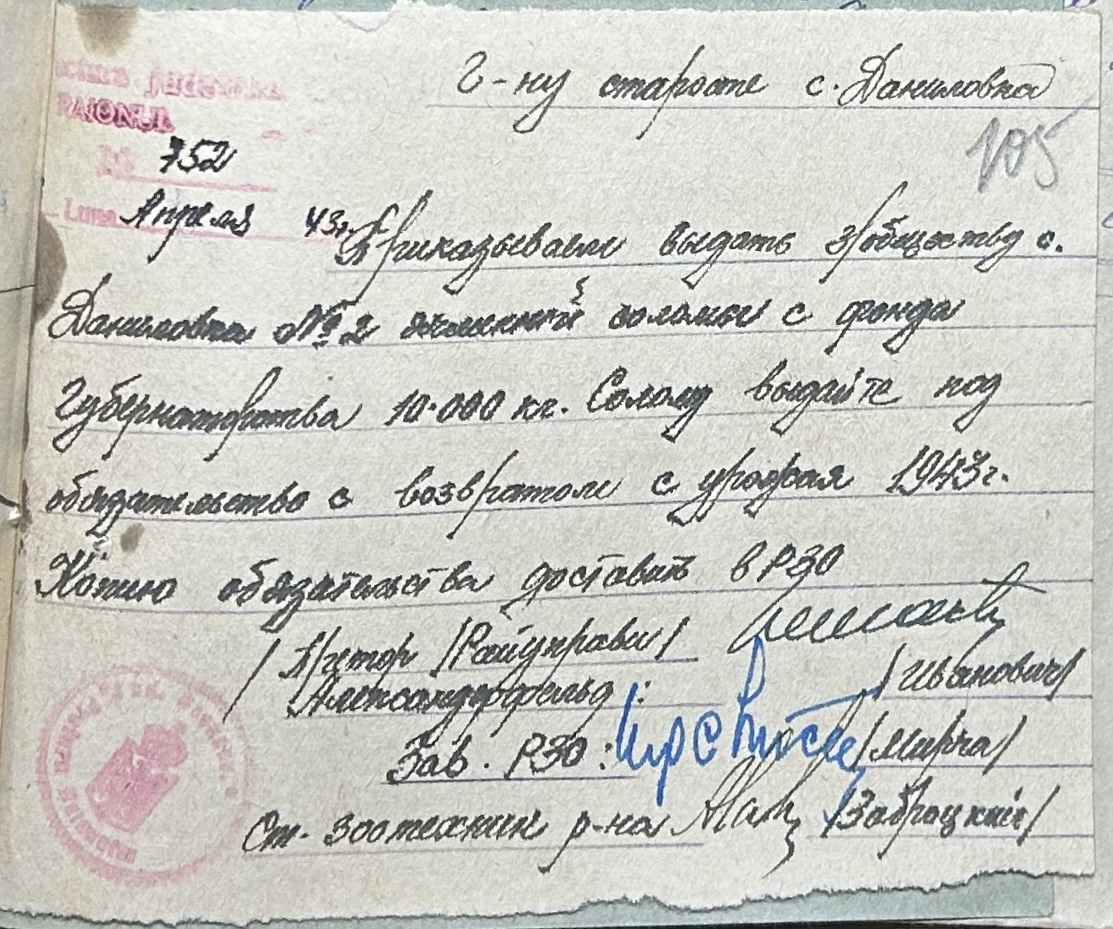 Г-ну старосте с. Даниловка
105
RAIONUL
№ 752
Luna Апреля 43г.
Приказываем выдать з/обществу с.
Даниловка №2 ячменной соломы с фонда
Губернаторства 10.000 кг. Солому выдайте под
обязательство с возвратом с урожая 1943г.
Копию обязательства доставить в РЗО
/Претор /Райуправы/
Александерфельд: /Иванович/
Зав. РЗО: /Мирча/
Ст. зоотехник р-на /Заброцкий/